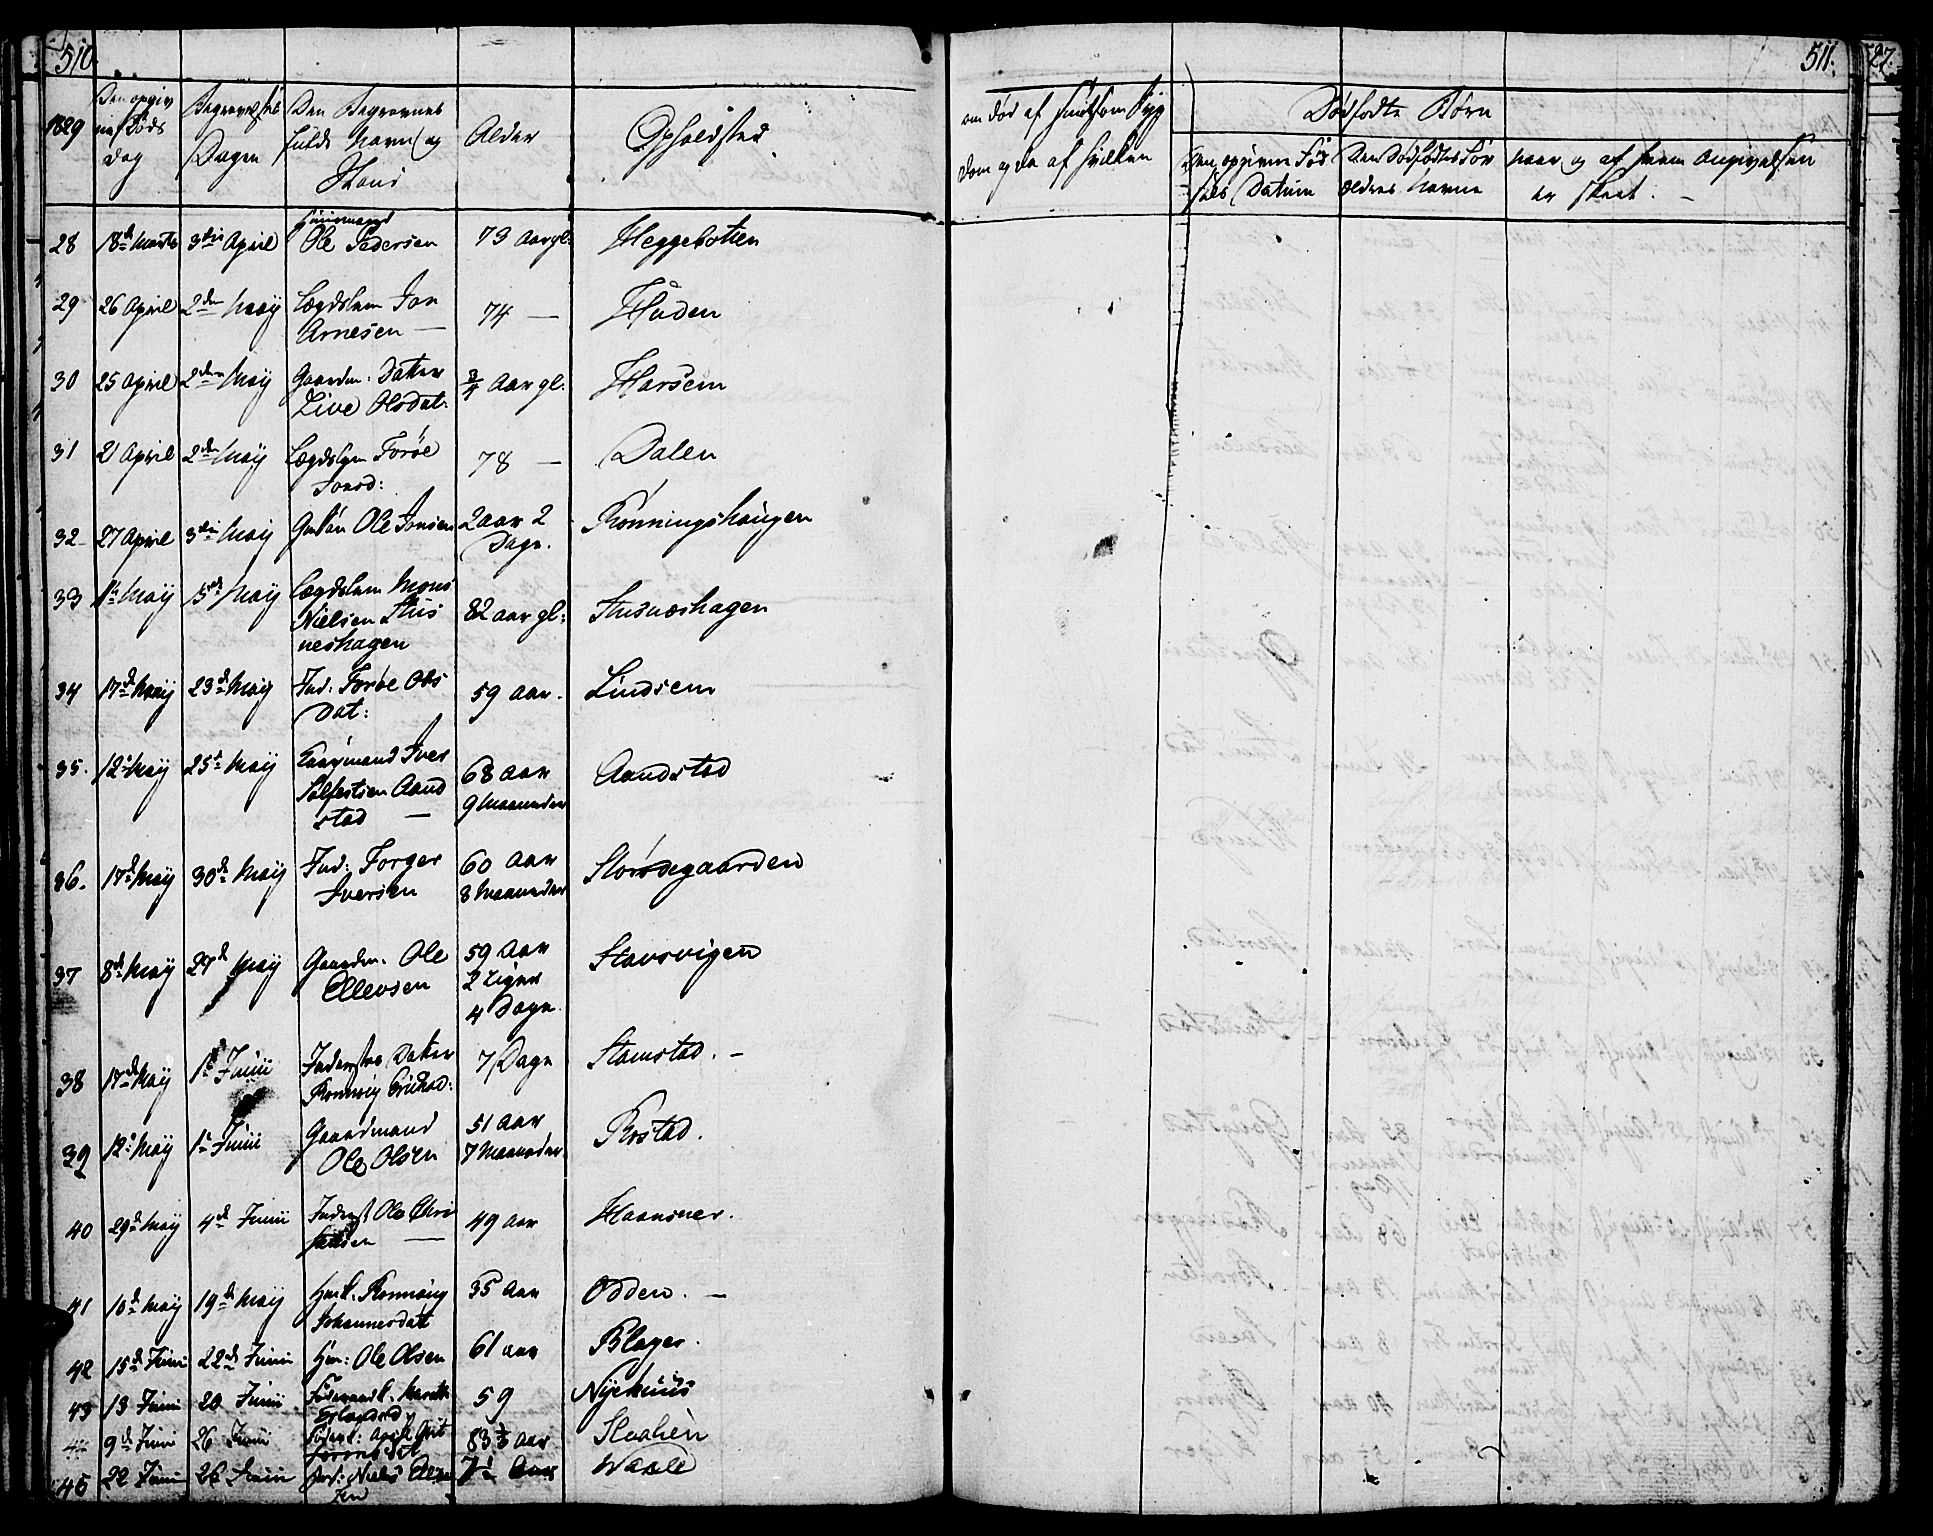 510
1829 Den opgivne Døds Dag Begravelses Dagen Den Begravnes fulde Navn og Stand Alder Opholdsted
28 18de Marts 3die April Huusmand Ole Pedersen 73 Aar gl: Heggebotten
29 26 April 2den Maij Lægdslem Jon Arnesen — 74 — Haaden
30 25 April 2den Maij Gaardm: Datter Live Olsdat: 3/4 Aar gl: Harsem
31 21 April 2den Maij Lægdslem Torøe Jonsd: 78 — Dalen
32 27 April 3die Maij Ole Jonsen 2 aar 2 Dage. Rønningshaugen
33 Maij 15de Maij Lægdslem Mons Nielsen Stusneshagen 82 aar gl: Stusnæshagen
34 17de Maij 23de Maij Ind: Torøe Olsdat: 59 Aar. Lindsem
35. 12te Maij 25de Maij Iver Solfestsen Aandstad — 68 Aar 9 Maaneder Aandstad
36. 17de Maij 30de Maij Ind: Torger Iversen 60 Aar 8 Maaneder Storødegaarden
37 8de Maij 27de Maij Gaardm. Ole Ellevsen 59 Aar 2 Uger 4 Dage. Stavsvigen
38 17de Maij 1te Junii Inderstes Datter Rønnøig 7 Dage Stamstad. —
39 12te Maij 1te Junii Gaardmand Ole Olsen 51 Aar 7 Maaneder Rostad.
40 29de Maij 4de Junii Inderst Ole — 49 Aar Haansnes.
41 10de Maij 19de Maij Rønnøug Johannesdat 35 Aar Odden. —
42 15de Junii 22de Junii Hm: Ole Olsen 61 aar Blager.
43 13 Junii 20 Junii Marit Erlandsd 59 Nyehuus
44 9de Junii 26 Junii 83 1/3 aar Staalien
45 22 Junii 26 Junii Niels Waale
511.
om død af smitsom Sygdom og da af hvilken
Dødfødte Børn
Den opgivne Fødsels Datum Den Dødfødtes Forældres Navne naar og af hvem Angivelsen er skeet. —